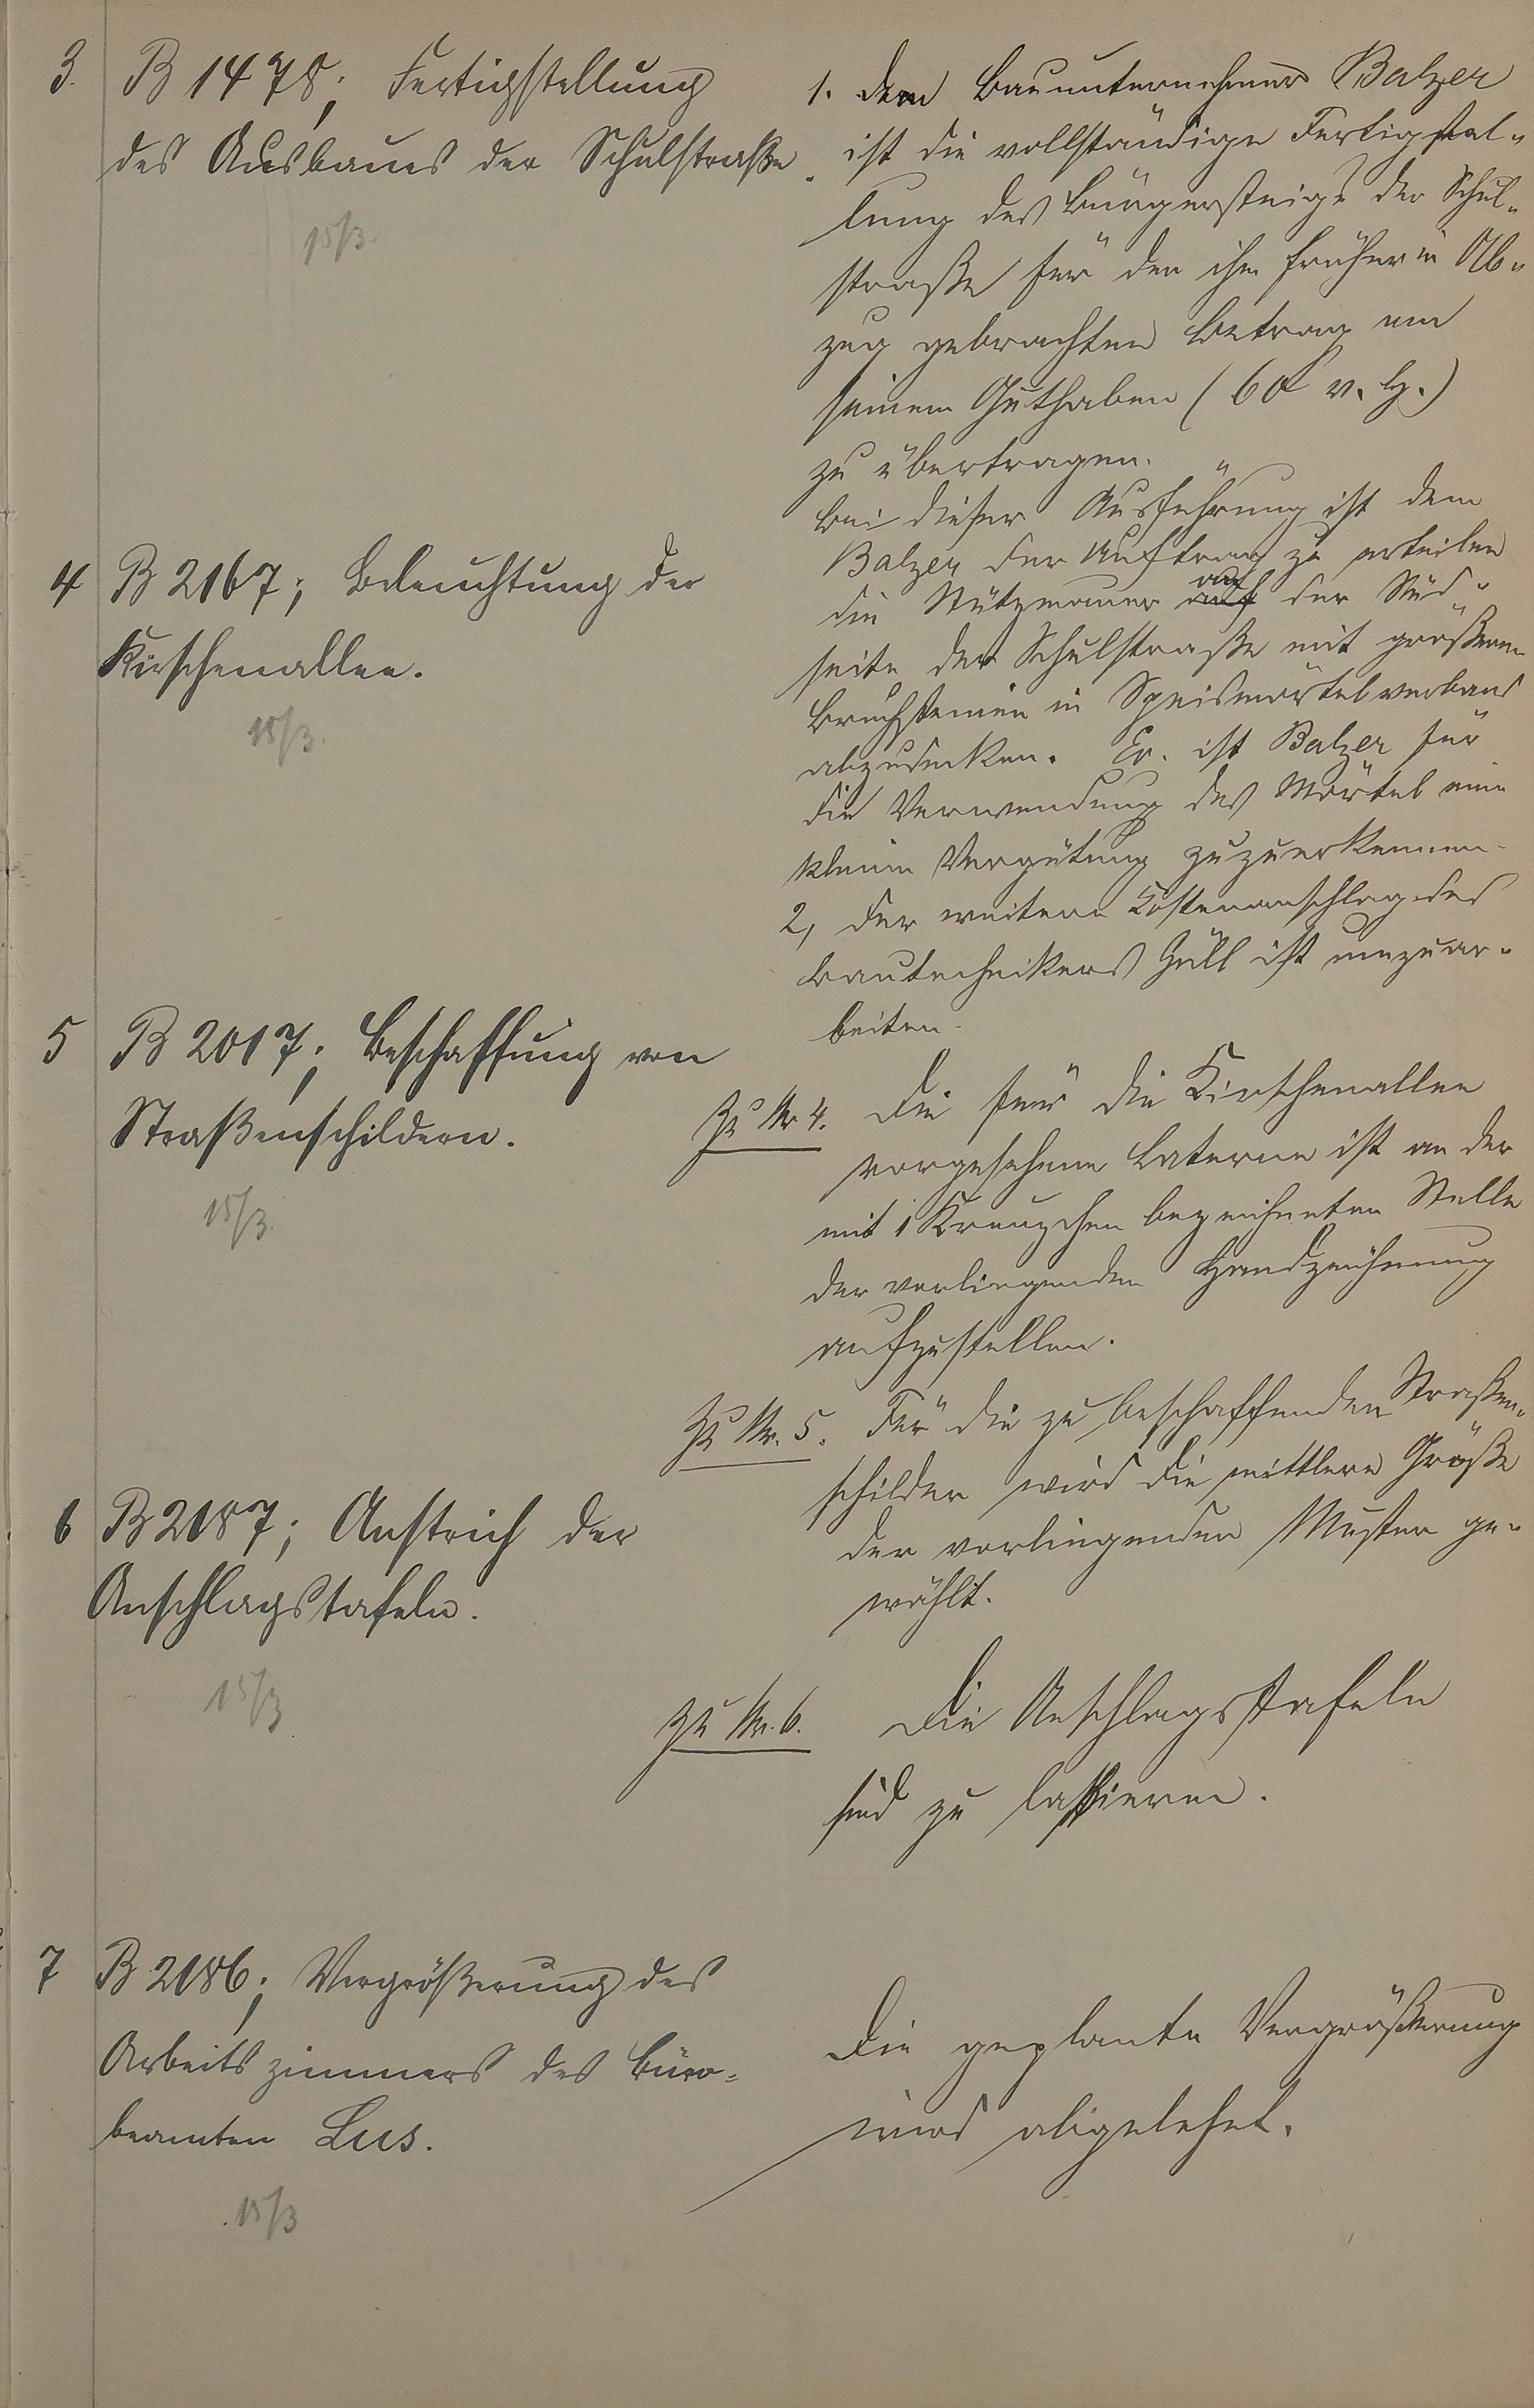 3. B 1478; Fertigstellung
des Ausbaues der Schulstraße.
15/3.
1. Dem Bauunternehmer Balzer
ist die vollständige Fertigstel-
lung des Bürgersteigs der Schul-
straße für den ihm früher in Ab-
zug gebrachten Betrag von
seinem Guthaben (60 v. H.)
zu übertragen.
Bei dieser Ausführung ist dem
Balzer der Auftrag zu erteilen
die Stützmauer auf der Süd-
seite der Schulstraße mit größeren
Bruchsteinen in Speismörtelverband
abzudecken. Ev. ist Balzer für
die Verwendung des Mörtels eine
kleine Vergütung zuzuerkennen.
2, Der weitere Kostenanschlag des
Bautechnikers Güll ist umzuar-
beiten.
4 B 2167; Beleuchtung der
Kirschenallee.
15/3.
Zu Nr 4. Die für die Kirschenallee
vorgesehene Laterne ist an der
mit 1 Kreuzchen bezeichneten Stelle
der vorliegenden Handzeichnung
aufzustellen.
5 B 2017; Beschaffung von
Straßenschildern.
15/3.
Zu Nr. 5. Für die zu beschaffenden Straßen-
schilder wird die mittlere Größe
der vorliegenden Muster ge-
wählt.
6 B 2187; Anstrich der
Anschlagstafeln.
15/3
Zu Nr. 6. Die Anschlagstafeln
sind zu
7 B 2186; Vergrößerung des
Arbeitszimmers des Büro-
beamten Lus.
15/3
Die geplante Vergrößerung
wird abgelehnt.